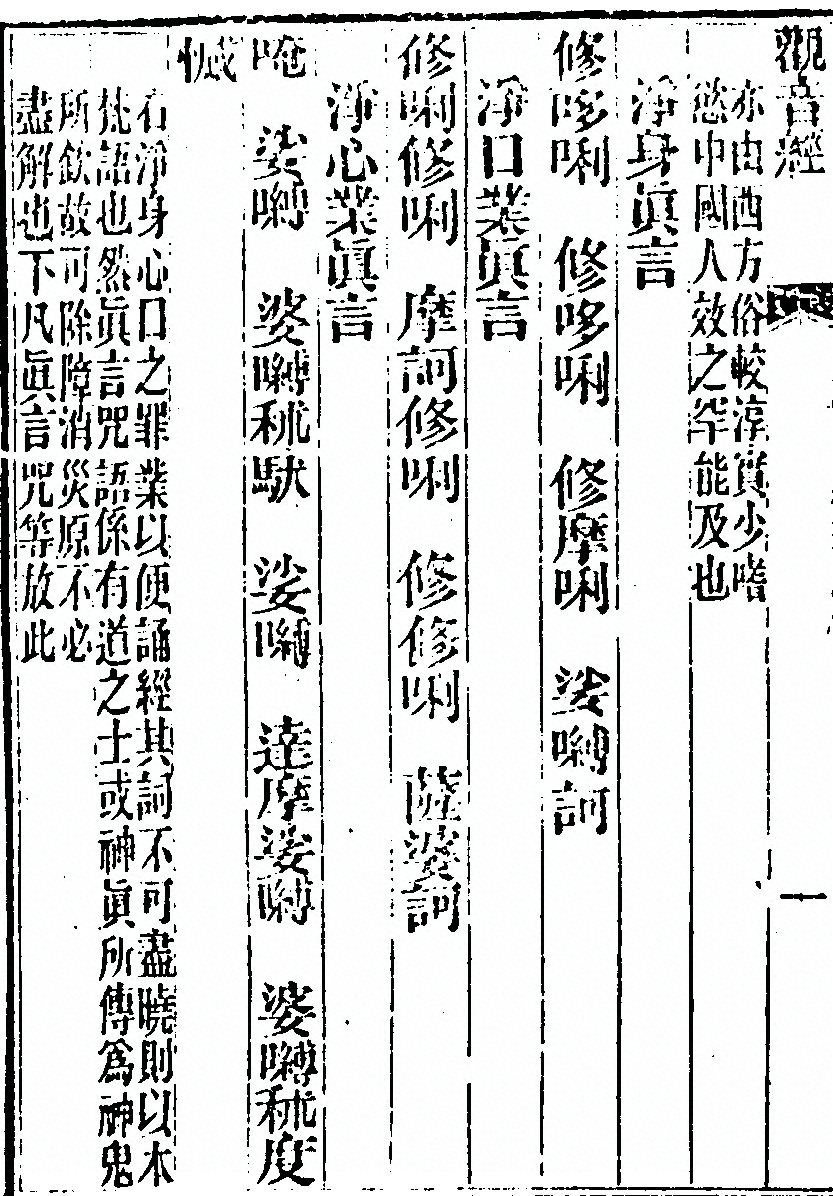 觀音經
一
亦由西方俗較淳實少嗜
慾中國人效之罕能及也
淨身眞言
修哆唎 修哆唎 修摩唎 娑嚩訶
淨口業眞言
修唎修唎 摩訶修唎 修修唎 薩婆訶
淨心業眞言
唵 娑嚩 婆嚩秫馱 娑嚩 達摩娑嚩 婆嚩秫度
憾
右淨身心口之罪業以便誦經其詞不可盡曉則以本
梵語也然眞言咒語係有道之士或神眞所傳爲神鬼
所欽故可除障消災原不必
盡解也下凡眞言咒等放此